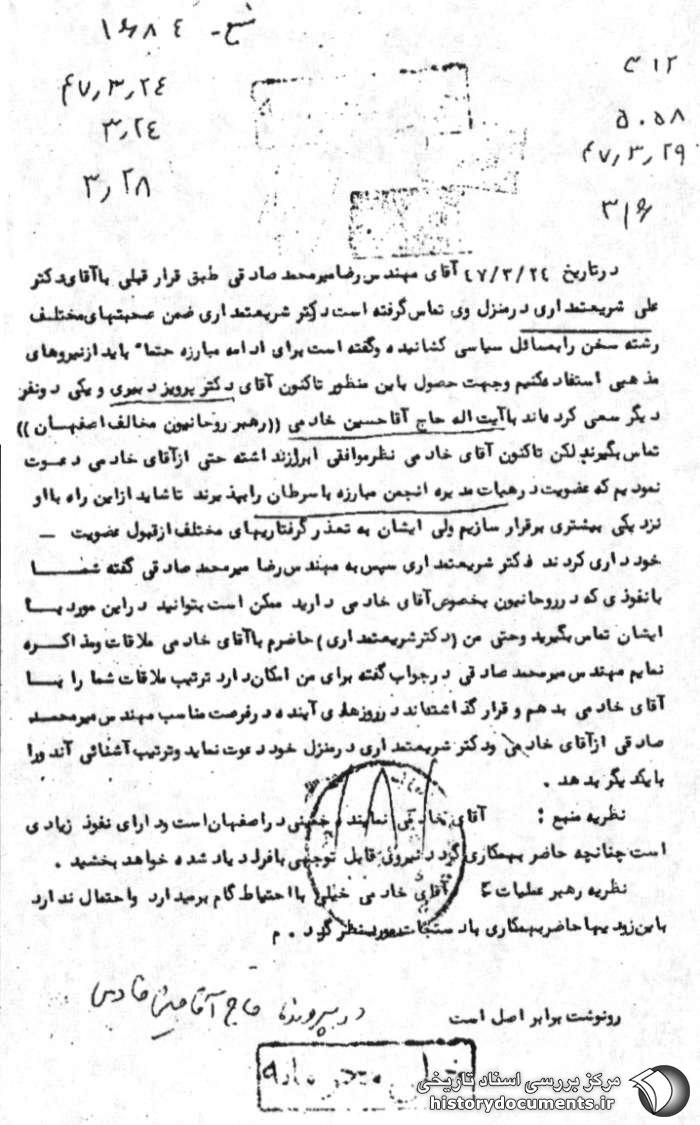 منبع - ۱۶۸٤
۴۷٫۳٫۲٤
۳٫۲٤
۳٫۲۸
۳۱۲
۵۰۵۸
۴۷٫۳٫۲۹
۳۱۶
درتاریخ ٤۷/۳/۲٤ آقای مهندس رضا میرمحمد صادقی طبق قرار قبلی با آقای دکتر
علی شریعتمداری درمنزل وی تماس گرفته است دکتر شریعتمداری ضمن صحبتهای مختلف
رشته سخن را بمسائل سیاسی کشانیده وگفته است برای ادامه مبارزه حتماً باید ازنیروهای
مذهبی استفاده کنیم وجهت حصول باین منظور تاکنون آقای دکتر پرویز دبیری و یکی دونفر
دیگر سعی کرده‌اند با آیت اله حاج آقا حسین خادمی ((رهبر روحانیون مخالف اصفهان))
تماس بگیرند لکن تاکنون آقای خادمی نظر موافقی ابراز نداشته حتی ازآقای خادمی دعوت
نمودیم که عضویت درهیات مدیره انجمن مبارزه با سرطان را بپذیرند تا شاید ازاین راه با او
نزدیکی بیشتری برقرار سازیم ولی ایشان به تعذر گرفتاریهای مختلف ازقبول عضویت —
خودداری کردند دکتر شریعتمداری سپس به مهندس رضا میرمحمد صادقی گفته شمـــا
با نفوذی که در روحانیون بخصوص آقای خادمی دارید ممکن است بتوانید دراین مورد بـا
ایشان تماس بگیرید وحتی من (دکتر شریعتمداری) حاضرم با آقای خادمی ملاقات ومذاکـره
نمایم مهندس میرمحمد صادقی درجواب گفته برای من امکان دارد ترتیب ملاقات شما را بـا
آقای خادمی بدهم و قرار گذاشته‌اند در روزهای آینده درفرصت مناسب مهندس میرمحمـد
صادقی ازآقای خادمی ودکتر شریعتمداری درمنزل خود دعوت نماید وترتیب آشنائی آندورا
با یکدیگر بدهد .
نظریه منبع : آقای خادمی نماینده خمینی دراصفهان است ودارای نفوذ زیادی
است چنانچه حاضر بهمکاری گردد نیروی قابل توجهی بافراد یاد شده خواهد بخشید .
نظریه رهبر عملیات ٤ آقای خادمی خیلی با احتیاط گام برمیدارد واحتمال ندارد
باین زودیها حاضر بهمکاری با دستجات مورد نظر گردد . م
در پرونده حاج آقا حسین خادمی
رونوشت برابر اصل است
خیلی محرمانه
مرکز بررسی اسناد تاریخی
historydocuments.ir